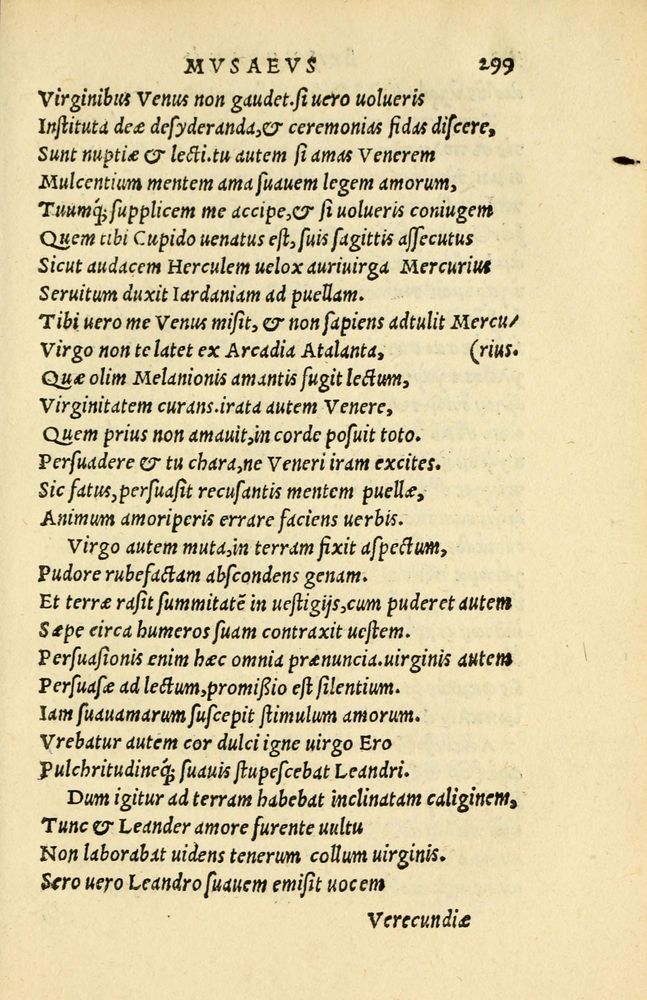 MVSAEVS 299
Virginibus Venus non gaudet.si uero uolueris
Instituta deæ desyderanda,& ceremonias fidas discere,
Sunt nuptiæ & lecti.tu autem si amas Venerem
Mulcentium mentem ama suauem legem amorum,
Tuumq́; supplicem me accipe,& si uolueris coniugem
Quem tibi Cupido uenatus est, suis sagittis assecutus
Sicut audacem Herculem uelox auriuirga Mercurius
Seruitum duxit Iardaniam ad puellam.
Tibi uero me Venus misit, & non sapiens adtulit Mercu/
Virgo non te latet ex Arcadia Atalanta, (rius.
Quæ olim Melanionis amantis fugit lectum,
Virginitatem curans.irata autem Venere,
Quem prius non amauit,in corde posuit toto.
Persuadere & tu chara,ne Veneri iram excites.
Sic fatus,persuasit recusantis mentem puellæ,
Animum amoriperis errare faciens uerbis.
Virgo autem muta,in terram fixit aspectum,
Pudore rubefactam abscondens genam.
Et terræ rasit summitatē in uestigijs,cum puderet autem
Sæpe circa humeros suam contraxit uestem.
Persuasionis enim hæc omnia prænuncia.uirginis autem
Persuasæ ad lectum,promißio est silentium.
Iam suauamarum suscepit stimulum amorum.
Vrebatur autem cor dulci igne uirgo Ero
Pulchritudineq́; suauis stupescebat Leandri.
Dum igitur ad terram habebat inclinatam caliginem,
Tunc & Leander amore furente uultu
Non laborabat uidens tenerum collum uirginis.
Sero uero Leandro suauem emisit uocem
Verecundiæ